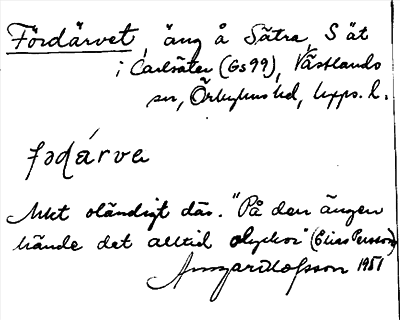 Fördärvet, äng å Sätra, S åt
i Carlsäter (Gs 99), Västlands
sn, Örbyhus hd, Upps. l.
fədárvə
Mkt oländigt där. "På den ängen
hände det alltid olyckor" (Elias Persson)
Olofsson 1951